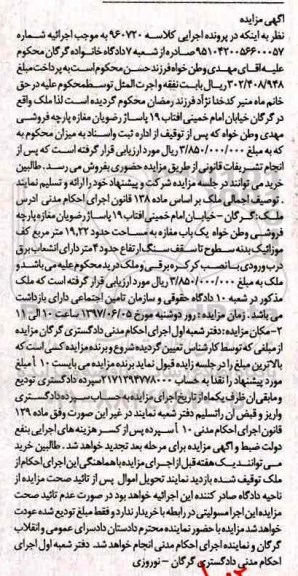 آگهی مزایده
نظر به اینکه در پرونده اجرایی کلاسه ۹۶۰۷۲۰ به موجب اجرائیه شماره
۹۵۱۰۴۲۰۰۵۶۶۰۰۰۵۷ صادره از شعبه ۷ دادگاه خانواده گرگان محکوم
علیه آقای مهدی وطن خواه فرزند حسن محکوم است به پرداخت مبلغ
۳۰۲/۴۰۸/۹۴۸ ریال بابت نفقه و اجرت المثل توسط محکوم علیه در حق
خانم ماه منیر کدخدا نژاد فرزند رمضان محکوم گردیده است لذا ملک واقع
در گرگان خیابان امام خمینی افتاب ۱۹ پاساژ رضویان مغازه پارچه فروشی
مهدی وطن خواه که پس از توقیف از اداره ثبت واسناد به میزان محکوم به
که به مبلغ ۳/۸۵۰/۰۰۰/۰۰۰ ریال مورد ارزیابی قرار گرفته است که پس از
انجام تشریفات قانونی از طریق مزایده حضوری بفروش می رسد . طالبین
خرید می توانند در جلسه مزایده شرکت و پیشنهاد خود را ارائه و تسلیم نمایند
. توصیف اجمالی ملک بر اساس ماده ۱۳۸ قانون اجرای احکام مدنی ادرس
ملک : گرگان - خیابان امام خمینی افتاب ۱۹ پاساژ رضویان مغازه پارچه
فروشی وطن خواه یک باب مغازه به مساحت حدود ۱۹,۲۲ متر مربع کف
موزائیک بدنه سطوح تا سقف سنگ ارتفاع حدود ۴ متر دارای انشعاب برق
درب ورودی با نصب کرکره برقی و ملک در ید محکوم علیه می باشد و
ملک به مبلغ ۳/۸۵۰/۰۰۰/۰۰۰ ریال مورد ارزیابی قرار گرفته است که ملک
مذکور در شعبه ۱۰ دادگاه حقوقی و سازمان تامین اجتماعی دارای بازداشت
می باشد . زمان مزایده : روز دوشنبه مورخ ۱۳۹۷/۰۶/۰۵ ساعت ۱۰ الی ۱۱
۲-مکان مزایده : دفتر شعبه اول اجرای احکام مدنی دادگستری گرگان مزایده
از مبلغی که توسط کارشناس تعیین گردیده شروع و برنده مزایده کسی است که
بالاترین مبلغ را در جلسه زایده قبول نماید برنده مزایده می بایست ۱۰ ٪ مبلغ
مورد پیشنهاد را نقدا به حساب ۲۱۷۱۲۹۴۷۷۸۰۰۰ سپرده دادگستری تودیع
و مابقی آن ظرف یکماه از تاریخ اجرای مزایده به حساب سپرده دادگستری
واریز و قبض آن راتسلیم دفتر شعبه نمایند در غیر این صورت وفق ماده ۱۲۹
قانون اجرای احکام مدنی ۱۰ ٪ سپرده پس از کسر هزینه های اجرایی بنفع
دولت ضبط و اگهی مزایده برای مرحله بعد تجدید خواهد شد . طالبین خرید
می توانند یک هفته قبل از اجرای مزایده با هماهنگی این اجرای احکام از
ملک توقیف شده بازدید نمایند تحویل اموال پس از تائید صحت مزایده از
ناحیه دادگاه صادر کننده این اجرائیه خواهد بود در صورت عدم تائید صحت
مزایده این اجرا مسولیتی در رابطه با خریدار ندارد و فقط مبلغ تودیع شده عودت
خواهد شد مزایده با حضور نماینده محترم دادستان دادسرای عمومی و انقلاب
گرگان و نماینده اجرای احکام مدنی انجام خواهد شد. دفتر شعبه اول اجرای
احکام مدنی دادگستری گرگان - نوروزی